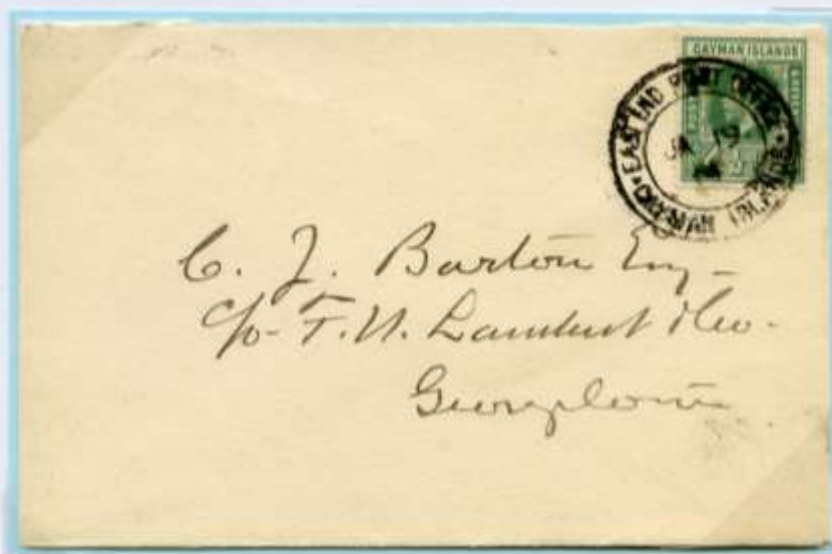 CAYMAN ISLANDS
EAST END POST OFFICE
JA 19
CAYMAN ISLANDS
C. J. Burton Esq
c/o F. N. Lambert & Co.
Georgetown